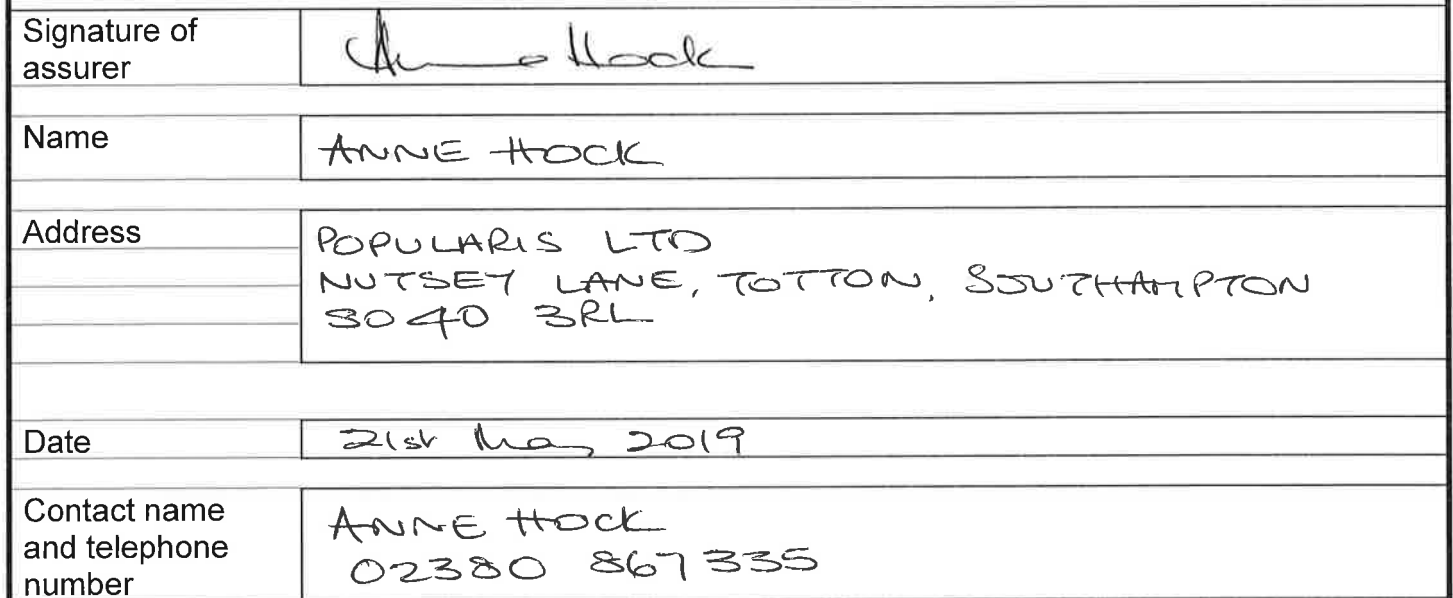 Signature of
assurer
Anne Hock
Name
ANNE HOCK
Address
POPULARIS LTD
NUTSEY LANE, TOTTON, SOUTHAMPTON
SO40 3RL
Date
21st May 2019
Contact name
and telephone
number
ANNE HOCK
02380 867335